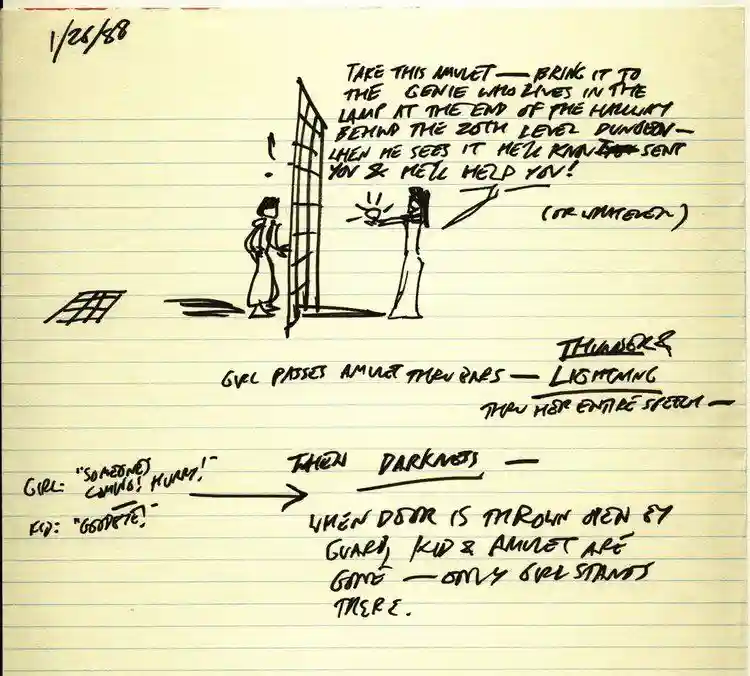 1/26/88
TAKE THIS AMULET — BRING IT TO
THE GENIE WHO LIVES IN THE
LAMP AT THE END OF THE HALLWAY
BEHIND THE 20TH LEVEL DUNGEON —
WHEN HE SEES IT HE'LL KNOW SENT
YOU & HE'LL HELP YOU!
(OR WHATEVER)
!
GIRL PASSES AMULET THRU BARS — THUNDER &
LIGHTNING
THRU HER ENTIRE SPEECH —
GIRL: "SOMEONE'S
COMING! HURRY!"
KID: "GOODBYE!"
THEN DARKNESS —
WHEN DOOR IS THROWN OPEN BY
GUARD, KID & AMULET ARE
GONE — ONLY GIRL STANDS
THERE.